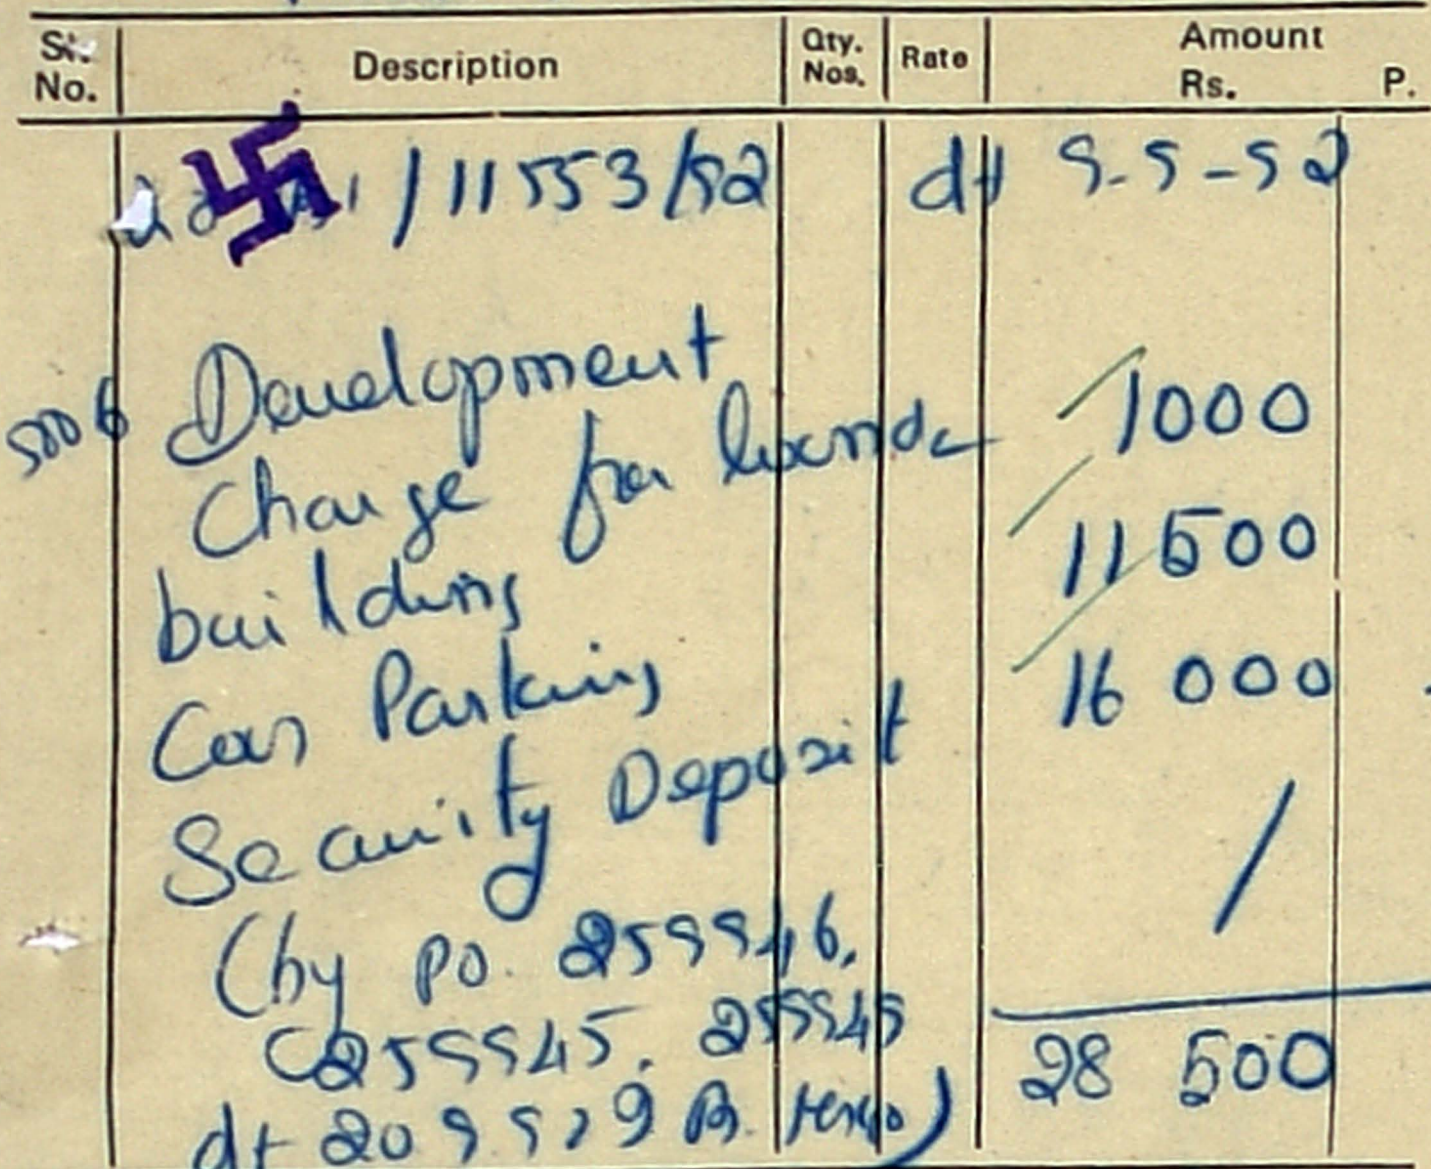 Sr. No. Description Qty. Nos. Rate Amount Rs. P.
/11553/92 dt 9-9-92
Development 1000
Charge for
building 11500
Car Parking 16 000
Security Deposit
(by PO. 259946.
259945. 259945 28 500
dt